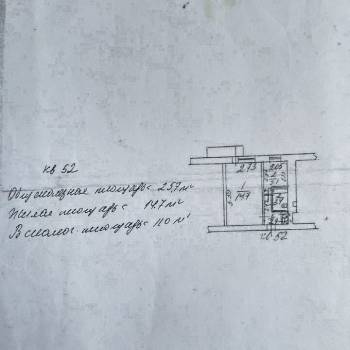 кв 52
Общеполезная площадь = 25,7 м²
Жилая площадь = 14,7 м²
Вспомог. площадь = 11,0 м²
2.73
1
14.7
кв 52